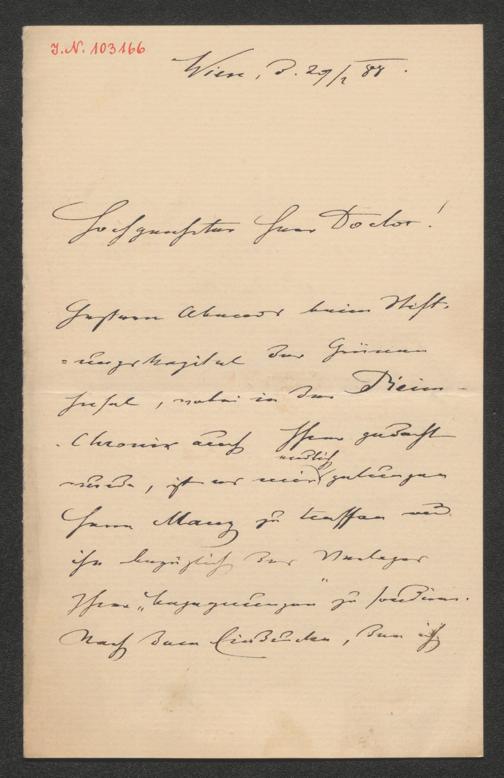 J.N. 103166
Wien, d. 29/1 88.
Hochgeehrter Herr Doctor!
Gestern Abends beim Stift-
=ungskapitel der Grünen
Insel, wobei in der Reim-
-Chronik auch Ihrer gedacht
wurde, ist es mir endlich gelungen
Herrn Manz zu treffen und
ihn bezüglich des Verlages
Ihrer „Begegnungen" zu sondiren.
Nach dem Eindrucke, den ich